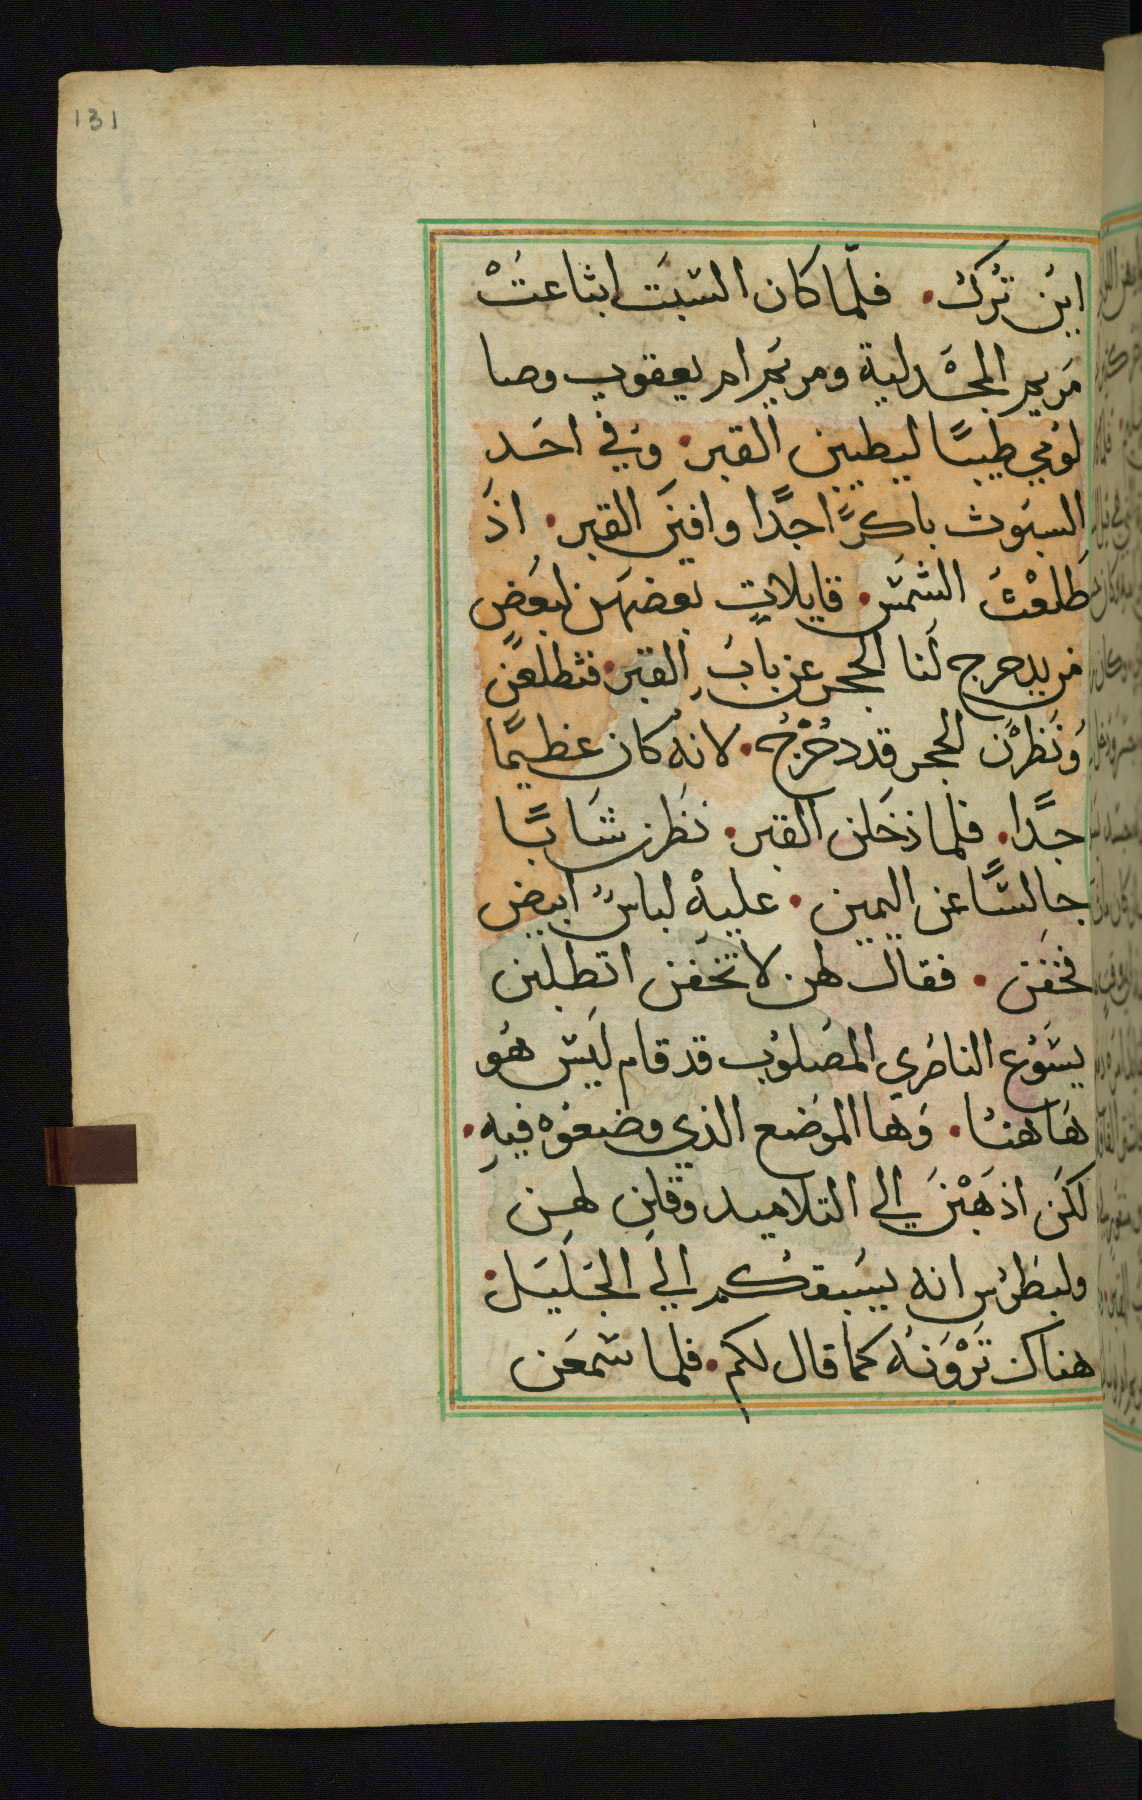 131
اين تُرك. فلمّا كان السَبَت ابثاعتْ
مَريم المجْدلية ومريَم ام يعقوب وصا
لوُمي طيبًا ليطيبن القبر. وَفي احَد
السبَوث باكرًا جدًا وافينَ القبر. اذَ
طَلعْتَ الشمَس. قايلاتٍ بعضهَن لبعَضٍ
من يدحرج لَنا الحجر عن بابَ القبر. فتطلعَن
وَنَظرْن الحجر قد دحُرْجُ. لانهُ كان عظيمًا
جدًا. فلما دخَلن القبر. نَظرن شابًا
جالسًا عن اليمين. عليهْ لباسُ ابيض
فخفَن. فقال لهن لا تخفَن اتطلبن
يسَوُع الناصَري المصَلوُب قد قام ليَس هُو
هَاهنا. وَها الموَضع الذي وضعوُه فيهِ.
لكَن اذهَبْنَ الي التلاميد وقلن لهن
ولبطَرُس انه يسَبقكُم اليَ الجَليَل.
هناك تَرْوَنهُ كما قال لكم. فلما سَمعَن